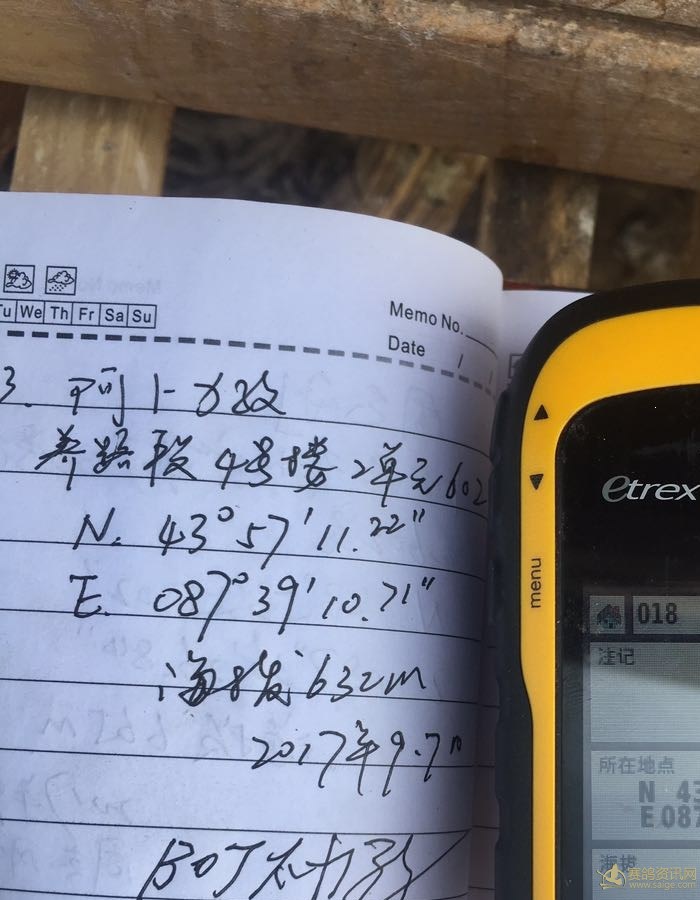 Tu We Th Fr Sa Su
Memo No.
Date / /
3. 阿
养路段 4号楼 2单元602
N. 43°57'11.22"
E. 087°39'10.71"
海拔 632m
2017年9.7日
etrex
menu
018
注记
所在地点
N 43
E 087
海拔
赛鸽资讯网
www.saige.com